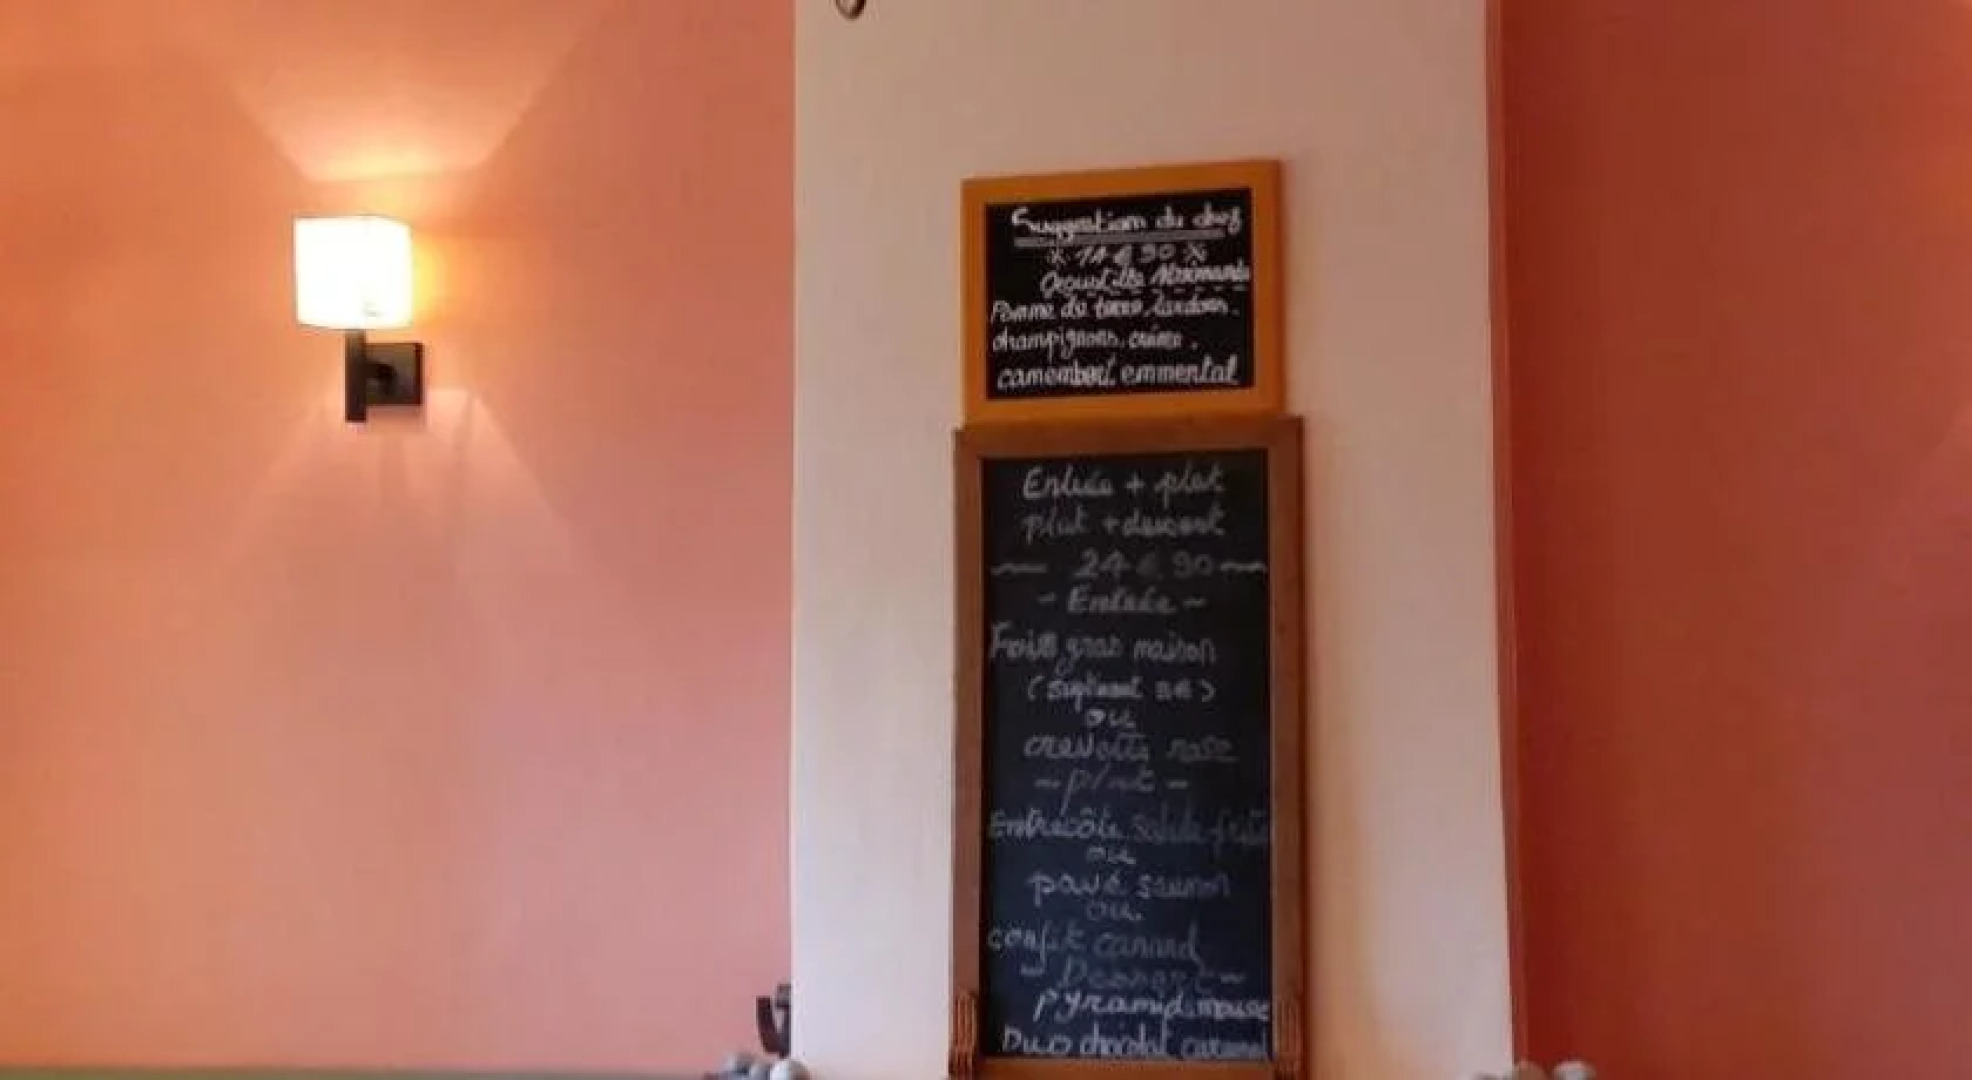 Suggestion du chef
14 € 90
Pomme de terre, lardons,
champignons, crème,
camembert, emmental
Entrée + plat
plat + dessert
24 € 90
- Entrée -
Foie gras maison
ou
crevette rose
- plat -
Entrecôte salade frite
ou
pavé saumon
ou
confit canard
- Dessert -
pyramid mousse
Duo chocolat caramel